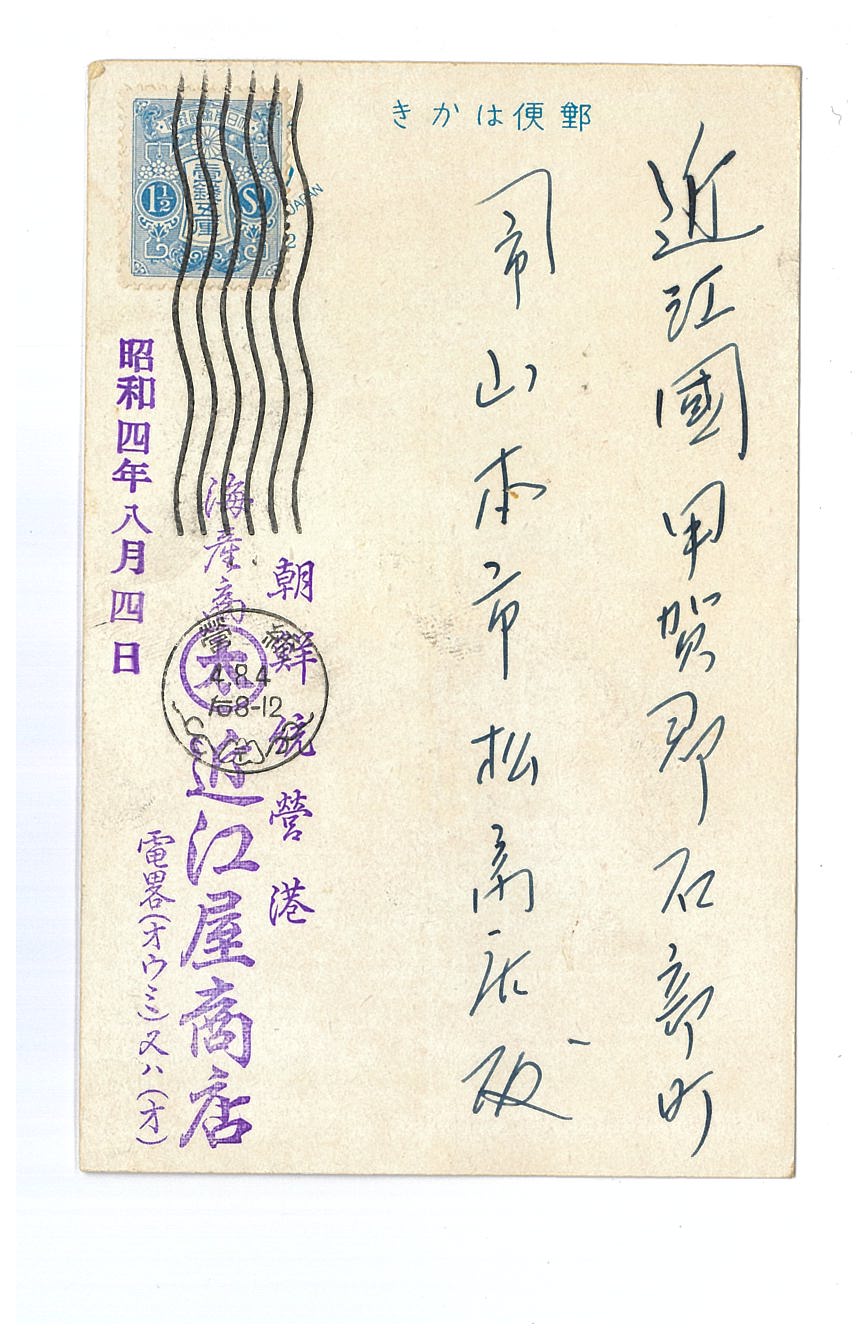 郵便はかき
近江國甲賀郡石部町
司山本市松商店殿
朝鮮統營港
海産商
太
近江屋商店
電畧(オウミ)又ハ(オ)
昭和四年八月四日
統營
4.8.4
后8-12
壹錢五厘
1½ Sⁿ
JAPAN